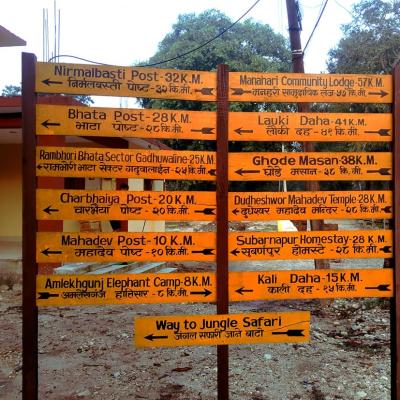 Nirmalbasti Post-32K.M.
निर्मलबस्ती पोष्ट-३२ कि.मी.
Bhata Post-28K.M.
भाटा पोष्ट-२८ कि.मी.
Rambhori Bhata Sector Gadhuwaline-25K.M.
रामभोरी भाटा सेक्टर गढुवालाईन-२५ कि.मी.
Charbhaiya Post-20K.M.
चारभैया पोष्ट-२० कि.मी.
Mahadev Post-10K.M.
महादेव पोष्ट-१० कि.मी.
Amlekhgunj Elephant Camp-8K.M.
अमलेखगंज हात्तिसार-८ कि.मी.
Manahari Community Lodge-57K.M.
मनहरी सामुदायिक लज-५७ कि.मी.
Lauki Daha-41K.M.
लौकी दह-४१ कि.मी.
Ghode Masan-38K.M.
घोडे मसान-३८ कि.मी.
Dudheshwor Mahadev Temple-28K.M.
दुधेश्वर महादेव मन्दिर-२८ कि.मी.
Subarnapur Homestay-28K.M.
सुवर्णपुर होमस्टे-२८ कि.मी.
Kali Daha-15K.M.
काली दह-१५ कि.मी.
Way to Jungle Safari
जंगल सफारी जाने बाटो